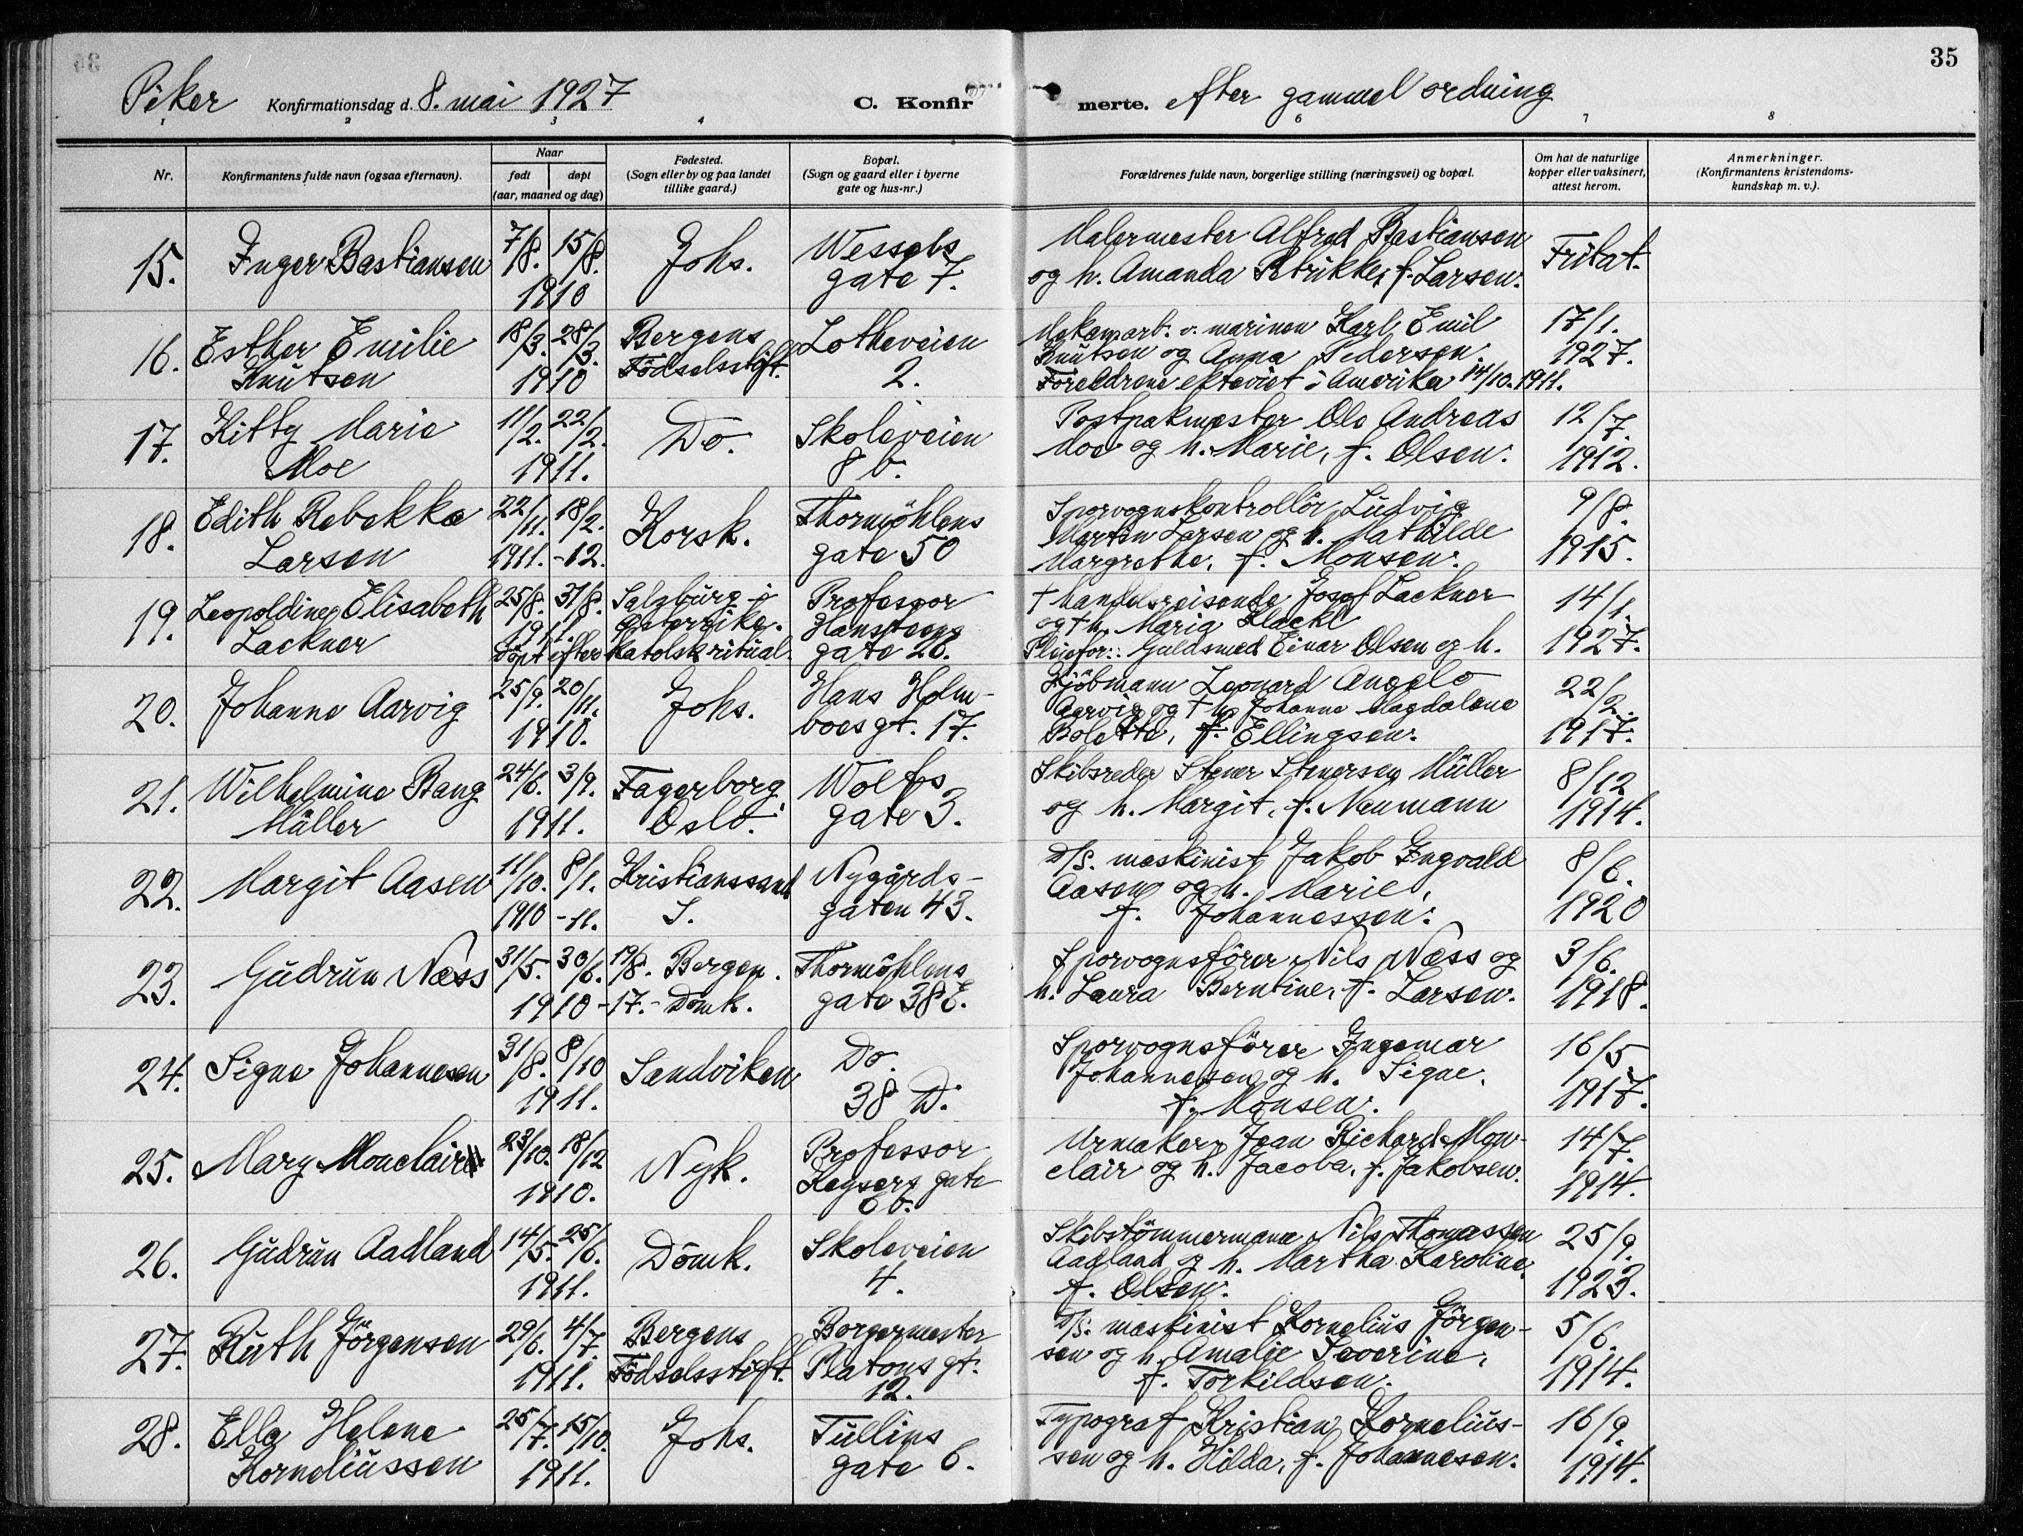 35
Piker Konfirmationsdag d. 8. mai 1927 C. Konfir merte. efter gammel ordning
1 2 3 4 6 7 8
Nr.
Konfirmantens fulde navn (ogsaa efternavn).
Naar
født døpt
(aar, maaned og dag)
Fødested.
(Sogn eller by og paa landet
tillike gaard.)
Bopæl.
(Sogn og gaard eller i byerne
gate og hus-nr.)
Forældrenes fulde navn, borgerlige stilling (næringsvei) og bopæl.
Om hat de naturlige
kopper eller vaksinert,
attest herom.
Anmerkninger.
(Konfirmantens kristendoms-
kundskap m. v.).
15. Inger Bastiansen 7/8. 15/8. 1910 Johs. Wessels
gate 7.
Malermester Alfred Bastiansen
og h. Amanda Petrikke, f. Larsen.
Fritat.
16. Esther Emilie
Knutsen
18/3. 28/3. 1910
Bergens
Fødselsstift.
Lotheveien
2.
Mekan. arb. v. marinen Karl Emil
Knutsen og Anna Pedersen.
Foreldrene ekteviet i Amerika 14/10. 1911.
17/1.
1927.
17. Kitty Marie
Moe
11/2. 22/2.
1911.
Do.
Skoleveien
8 b.
Postpakmester Ole Andreas
Moe og h. Marie, f. Olsen.
12/7.
1912.
18. Edith Rebekka
Larsen
22/11. 18/2.
1911. -12.
Korsk.
Thormöhlens
gate 50
Sporvognskontrollör Ludvig
Martin Larsen og h. Mathilde
Margrethe, f. Monsen.
9/8.
1915.
19. Leopoldine Elisabeth
Lackner
25/8. 31/8.
1911.
Döpt efter katolsk ritual.
Salzburg i
Österrike.
Professor
Hansteens
gate 26.
† handelsreisende Josef Lackner
og † h. Maria Klackl
Pleiefor.: Guldsmed Einar Olsen og h.
14/1.
1927.
20. Johanne Aarvig
25/9. 20/11.
1910.
Johs.
Hans Holm-
boes gt. 17.
Kjöbmann Leonard Angelo
Aarvig og † h. Johanne Magdalene
Bolette, f. Ellingsen.
22/2.
1917.
21. Wilhelmine Bang
Müller
24/6. 3/9.
1911.
Fagerborg,
Oslo.
Wolfs
gate 3.
Skibsreder Stener Stenersen Müller
og h. Margit, f. Neumann
8/12
1914.
22. Margit Aasen
11/10. 8/1.
1910 -11.
Kristianssund
S.
Nygårds-
gaten 43.
D/S. maskinist Jakob Ingvald
Aasen og h. Marie,
f. Johannessen.
8/6.
1920
23. Gudrun Næss
31/5. 30/6.
1910
19/8. Bergen.
-17. - Domk.
Thormöhlens
gate 38 E.
Sporvognsförer Nils Næss og
h. Laura Berntine, f. Larsen.
3/6.
1918.
24. Signe Johannesen
31/8. 8/10
1911.
Sandviken
Do.
38 D.
Sporvognsförer Ingemar
Johannesen og h. Signe,
f. Monsen.
16/5.
1917.
25. Mary Monclair
23/10. 18/12
1910.
Nyk.
Professor
Keysers gate
6 b.
Urmaker Jean Richard Mon-
clair og h. Jacoba, f. Jakobsen.
14/7.
1914.
26. Gudrun Aadland
14/5. 25/6.
1911.
Domk.
Skoleveien
4.
Skibstömmermann Nils Thomassen
Aadland og h. Martha Karoline,
f. Olsen.
25/9.
1923.
27. Ruth Jörgensen
29/6. 4/7.
1911.
Bergens
Fødselsstift.
Borgermester
Platous gt.
12.
D/S. maskinist Kornelius Jörgen-
sen og h. Amalie Severine,
f. Torkildsen.
5/6.
1914.
28. Ella Helene
Korneliussen
25/7. 15/10.
1911.
Johs.
Tullins
gate 6.
Typograf Kristian Kornelius-
sen og h. Hilda, f. Johannesen.
16/9.
1914.